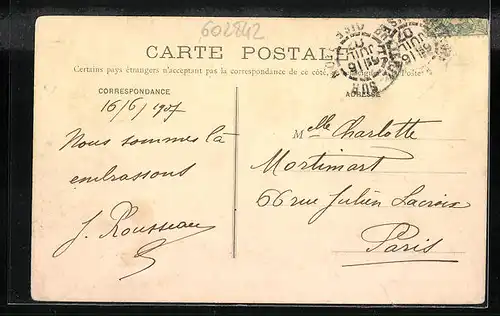 602842
CARTE POSTALE
Certains pays étrangers n'acceptant pas la correspondance de ce côté, Poste
CORRESPONDANCE
ADRESSE
SUR
16/6/1907
Nous sommes là
embrassons
J. Rousseau
Melle Charlotte
Mortimart
66 rue Julien Lacroix
Paris